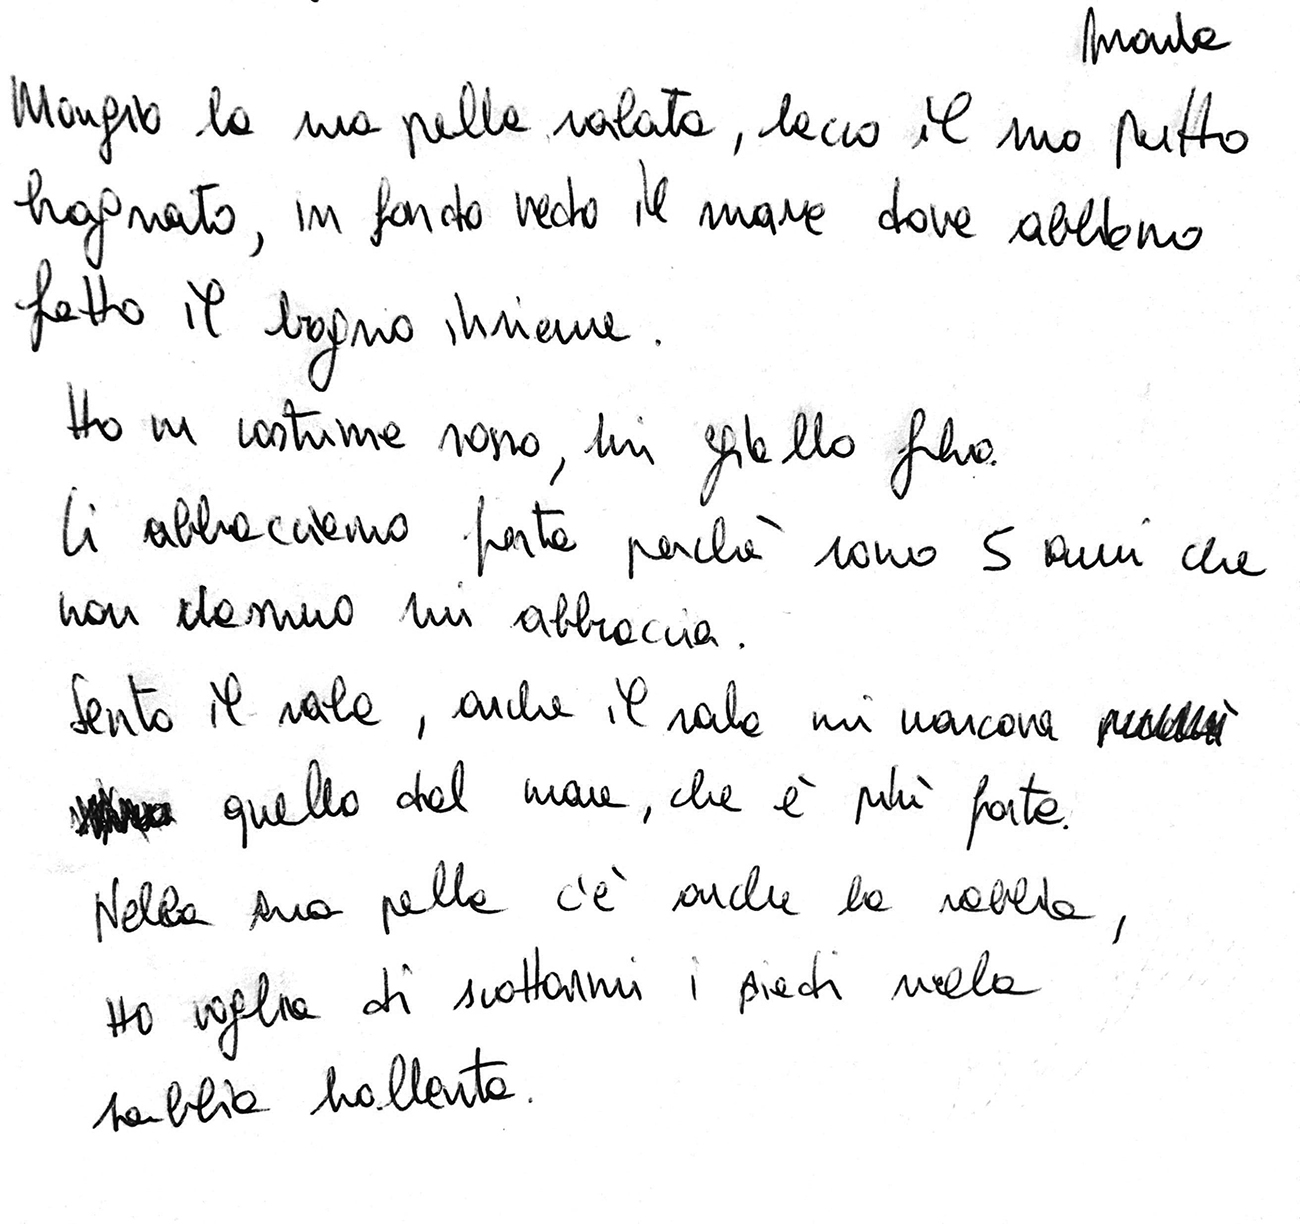 Mangio la sua pelle salata, lecco il suo petto
bagnato, in fondo vedo il mare dove abbiamo
fatto il bagno insieme.
Ho un costume rosso, lui giallo fluo.
Ci abbracciamo forte perchè sono 5 anni che
non nessuno mi abbraccia.
Sento il sale, anche il sale mi mancava
quello del mare, che è più forte.
Nella sua pelle c'è anche la rabbia,
Ho voglia di scottarmi i piedi nella
sabbia bollente.